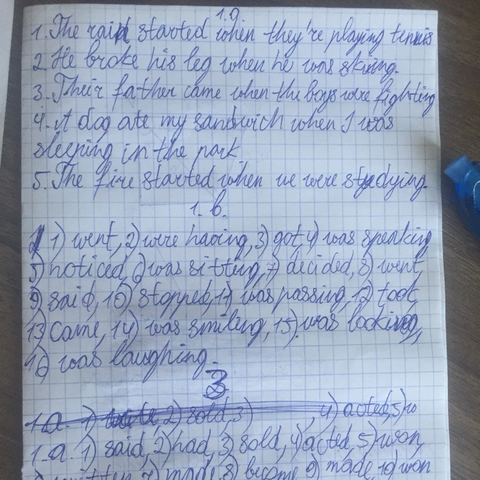 1.a
1. The rain started when they're playing tennis
2. He broke his leg when he was skiing.
3. Their father came when the boys were fighting
4. A dog ate my sandwich when I was
sleeping in the park.
5. The fire started when we were studying.
1. b.
1) went, 2) were having, 3) got, 4) was speaking
5) noticed, 6) was sitting, 7) decided, 8) went,
9) said, 10) stopped, 11) was passing, 12) took,
13) came, 14) was smiling, 15) was looking,
16) was laughing.
3
1.a. 1) 2) sold, 3) 4) acted, 5) w
1.a. 1) said, 2) had, 3) sold, 4) acted, 5) won,
written, 7) made, 8) become, 9) made, 10) won